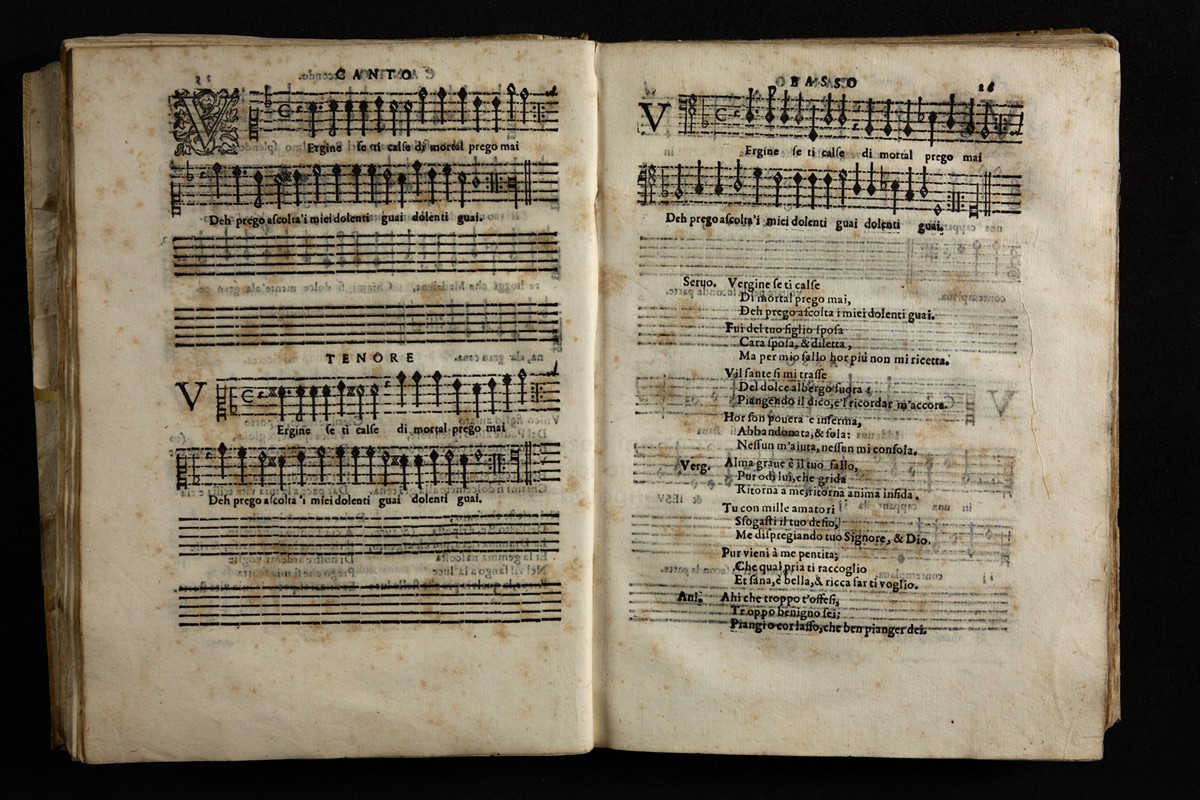 CANTO
VErgine se ti calse di mortal prego mai
Deh prego ascolta'i miei dolenti guai dolenti guai.
TENORE
VErgine se ti calse di mortal prego mai
Deh prego ascolta i miei dolenti guai dolenti guai.
BASSO 26
VErgine se ti calse di mortal prego mai
Deh prego ascolta'i miei dolenti guai dolenti guai.
Seruo. Vergine se ti calse
Di mortal prego mai,
Deh prego ascolta i miei dolenti guai.
Fui del tuo figlio sposa
Cara sposa, & diletta,
Ma per mio fallo hor più non mi ricetta.
Vil fante si mi trasse
Del dolce albergo fuora
Piangendo il dico, e'l ricordar m'accora.
Hor son pouera e inferma,
Abbandonata, & sola:
Nessun m'aiuta, nessun mi consola.
Verg. Alma graue è il tuo fallo,
Pur odi lui, che grida
Ritorna a me, ritorna anima infida.
Tu con mille amatori
Sfogasti il tuo desio,
Me dispregiando tuo Signore, & Dio.
Pur vieni à me pentita;
Che qual pria ti raccoglio
Et sana, è bella, & ricca far ti voglio.
Ani. Ahi che troppo t'offesi,
Troppo benigno sei;
Piangi o cor lasso, che ben pianger dei.